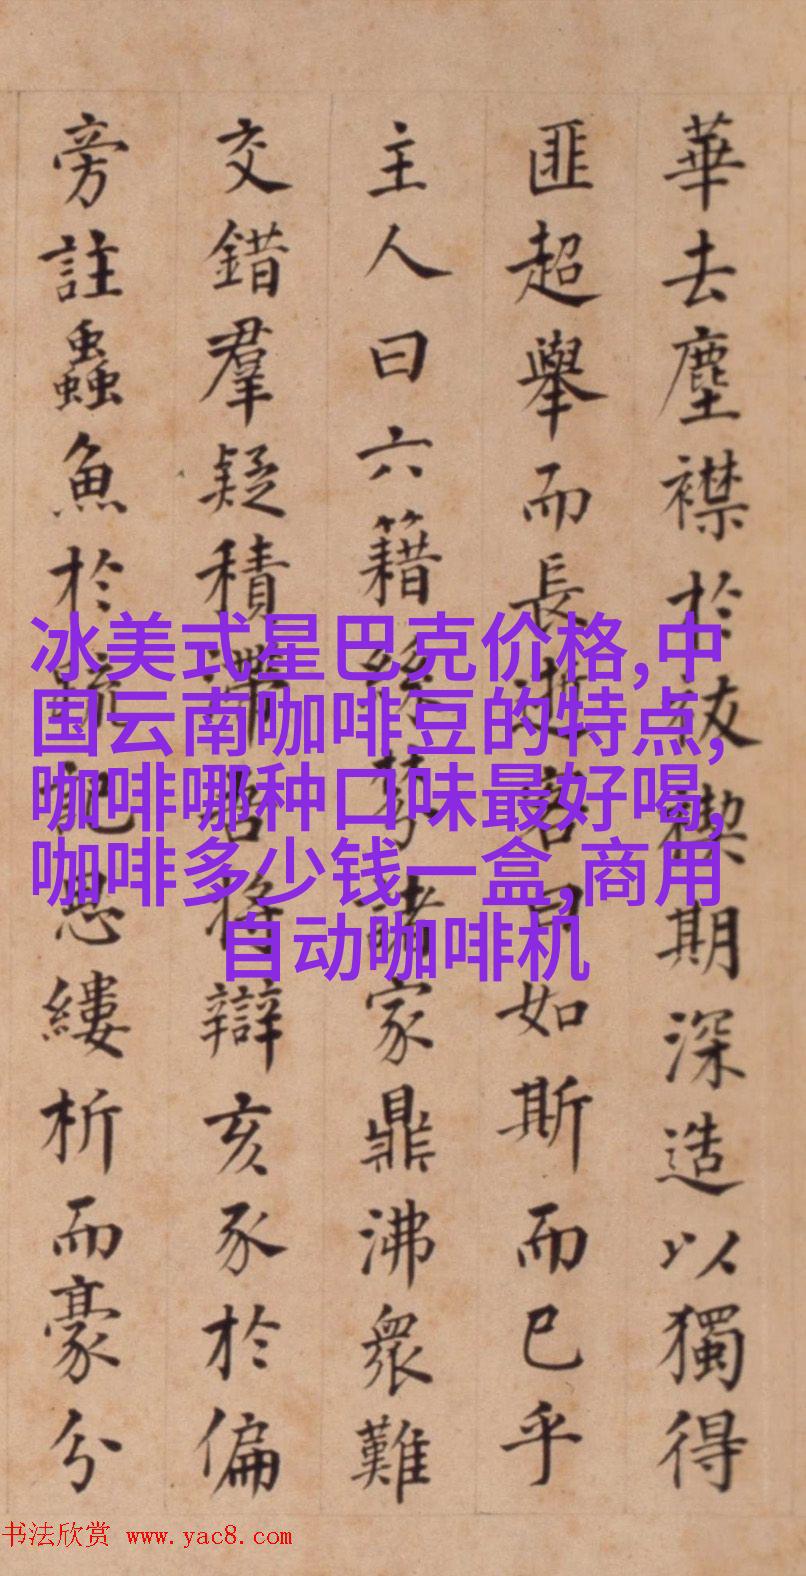 華去塵襟於祓禊期深造以獨得
匪超舉而長客曰如斯而已乎
主人曰六籍絲棼諸家鼎沸衆難
交錯羣疑積滯將辯亥豕於偏
旁註蟲魚於疏記思縷析而豪分
冰美式星巴克价格,中
国云南咖啡豆的特点,
咖啡哪种口味最好喝,
咖啡多少钱一盒,商用
自动咖啡机
书法欣赏 www.yac8.com